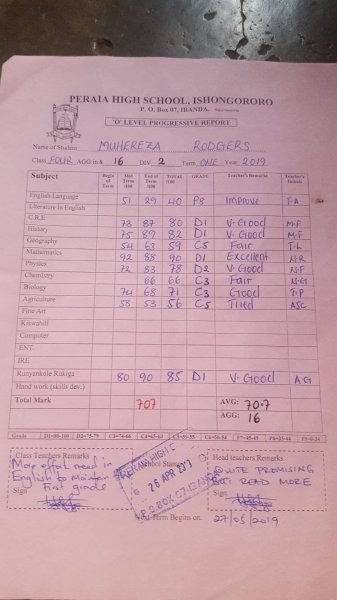 PERAIA HIGH SCHOOL, ISHONGORORO
P. O. Box 07, IBANDA.
'O' LEVEL PROGRESSIVE REPORT
Name of Student MUHEREZA RODGERS
Class FOUR AGG in 8 16 DIV 2 Term ONE Year 2019
Subject Begin of Term Mid Term /100 End of Term /100 TOTAL /100 GRADE Teacher's Remarks Teacher's Initials
English Language 51 29 40 P8 Improve T-A
Literature in English
C.R.E 73 87 80 D1 V-Good M-F
History 75 89 82 D1 V-Good M-F
Geography 54 63 59 C5 Fair T-L
Mathematics 92 88 90 D1 Excellent N-R
Physics 72 83 78 D2 V-Good N-F
Chemistry 66 66 C3 Fair N-G
Biology 74 68 71 C3 Good T-P
Agriculture 58 53 56 C5 Tried ASC
Fine Art
Kiswahili
Computer
ENT.
IRE
Runyankole Rukiga 80 90 85 D1 V-Good A G
Hand work (skills dev.)
Total Mark 707 AVG: 70.7
AGG: 16
Grade D1=80-100 D2=75-79 C3=66-74 C4=65-63 C5=59-55 C6=50-54 P7=45-49 P8=35-44 F9=0-34
Class Teachers Remarks
effort need in
English to
First grade
Sign
School Stamp
PERAIA HIGH
26 APR
P.O.BOX 07-IBANDA
Head teachers Remarks
QUITE PROMISING
BUT READ MORE
Sign
Next Term Begins on. 27/05/2019